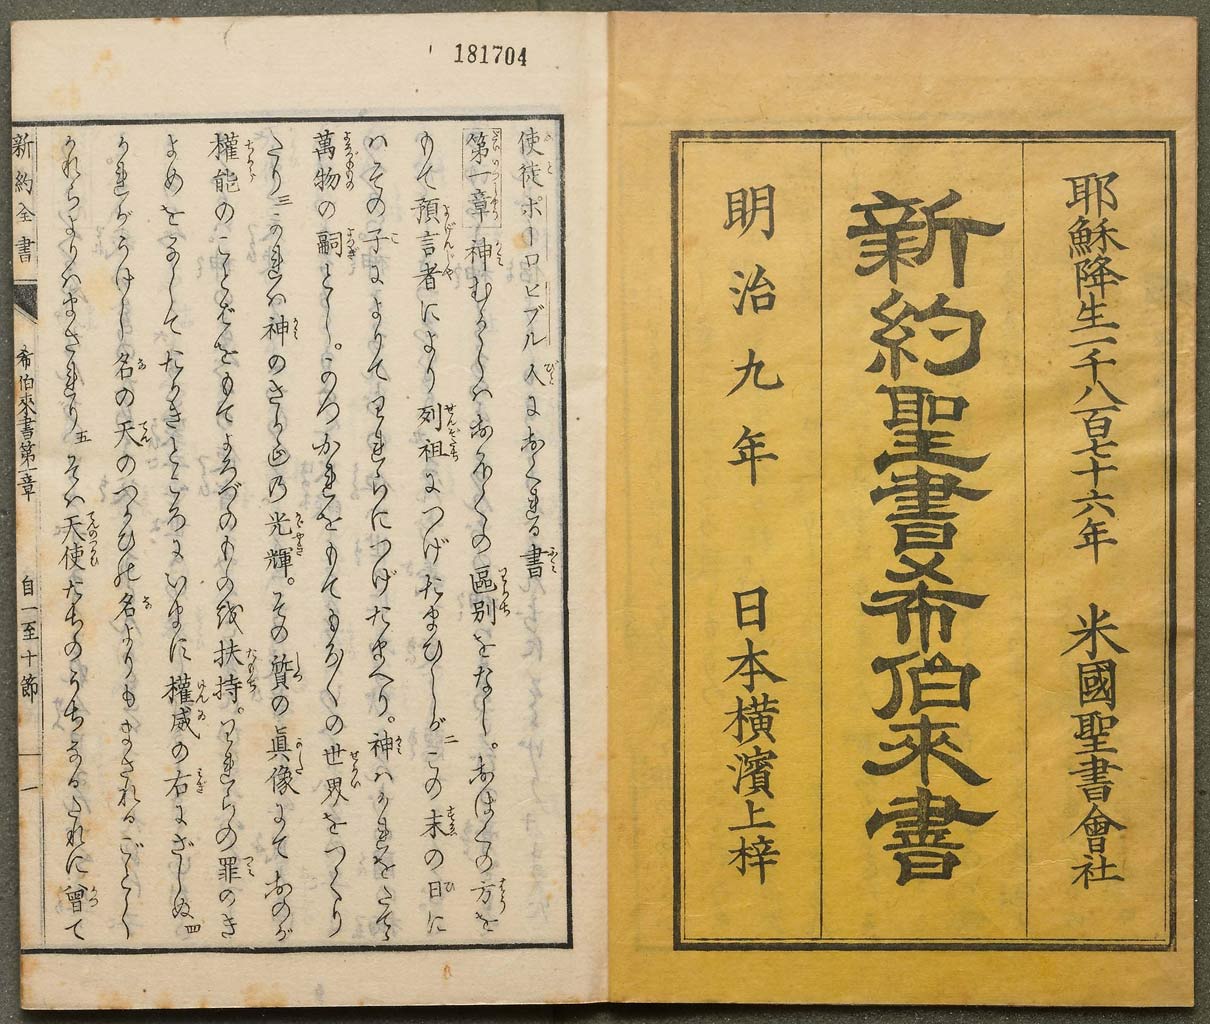 耶穌降生一千八百七十六年 米國聖書會社
新約聖書希伯來書
明治九年 日本橫濱上梓
181704
使徒ポーロヒブル人におくれる書
第一章 神むかしハおほくの區別をなし。おほくの方を
もて預言者により列祖につげたまひしが 二 この末の日に
ハその子によりてわれらにつげたまへり。神ハかれをたてゝ
萬物の嗣とし。かつかれをもてもろ〱の世界をつくり
たり 三 かれハ神のさかえの光輝。その質の眞像にておのが
權能のことばをもてよろづのものを扶持。われらの罪のき
よめをなしてたかきところに 權威の右にざしぬ 四
かれがうけし名の天のつかひの名よりもまされるごとく
かれらよりハまされり 五 そハ天使たちのうちなるたれに曾て
新約全書 希伯來書第一章 自一至十節 一